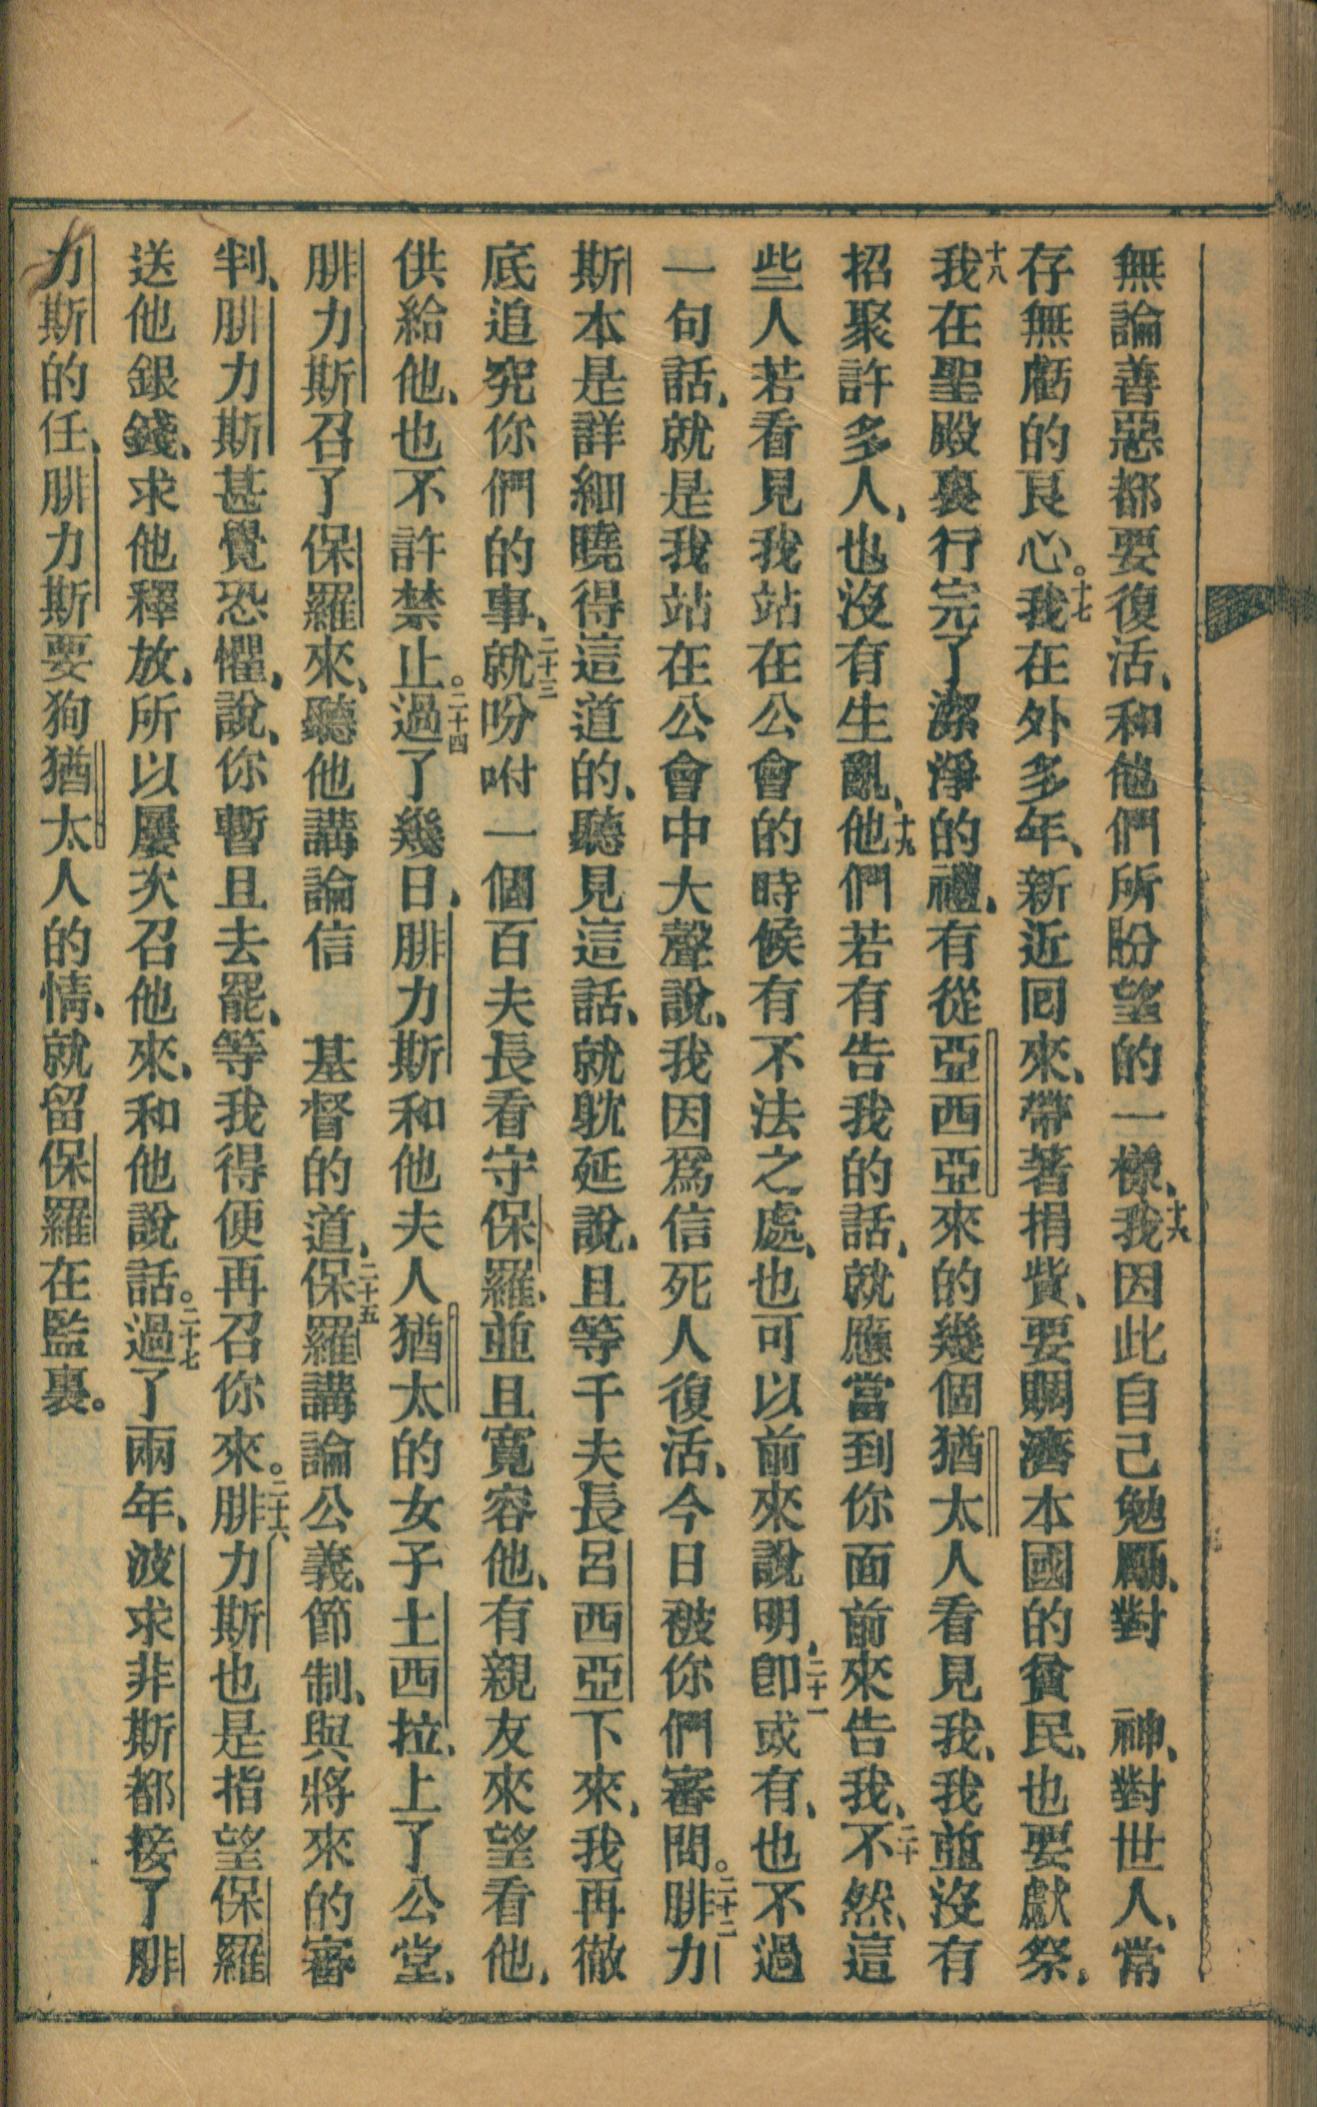 無論善惡都要復活、和他們所盼望的一樣、十六我因此自己勉勵、對　神、對世人、常
存無虧的良心。十七我在外多年、新近囘來、帶著捐貲、要賙濟本國的貧民、也要獻祭、
十八我在聖殿裏行完了潔淨的禮、有從亞西亞來的幾個猶太人看見我、我並沒有
招聚許多人、也沒有生亂、十九他們若有告我的話、就應當到你面前來告我、二十不然、這
些人若看見我站在公會的時候有不法之處、也可以前來說明、二十一卽或有、也不過
一句話、就是我站在公會中大聲說、我因爲信死人復活、今日被你們審問。二十二腓力
斯本是詳細曉得這道的、聽見這話、就躭延說、且等千夫長呂西亞下來、我再徹
底追究你們的事、二十三就吩咐一個百夫長看守保羅、並且寬容他、有親友來望看他、
供給他、也不許禁止。二十四過了幾日、腓力斯和他夫人猶太的女子土西拉、上了公堂、
腓力斯召了保羅來、聽他講論信　基督的道、二十五保羅講論公義、節制、與將來的審
判、腓力斯甚覺恐懼、說、你暫且去罷、等我得便再召你來。二十六腓力斯也是指望保羅
送他銀錢、求他釋放、所以屢次召他來、和他說話。二十七過了兩年、波求非斯都接了腓
力斯的任、腓力斯要狥猶太人的情、就留保羅在監裏。